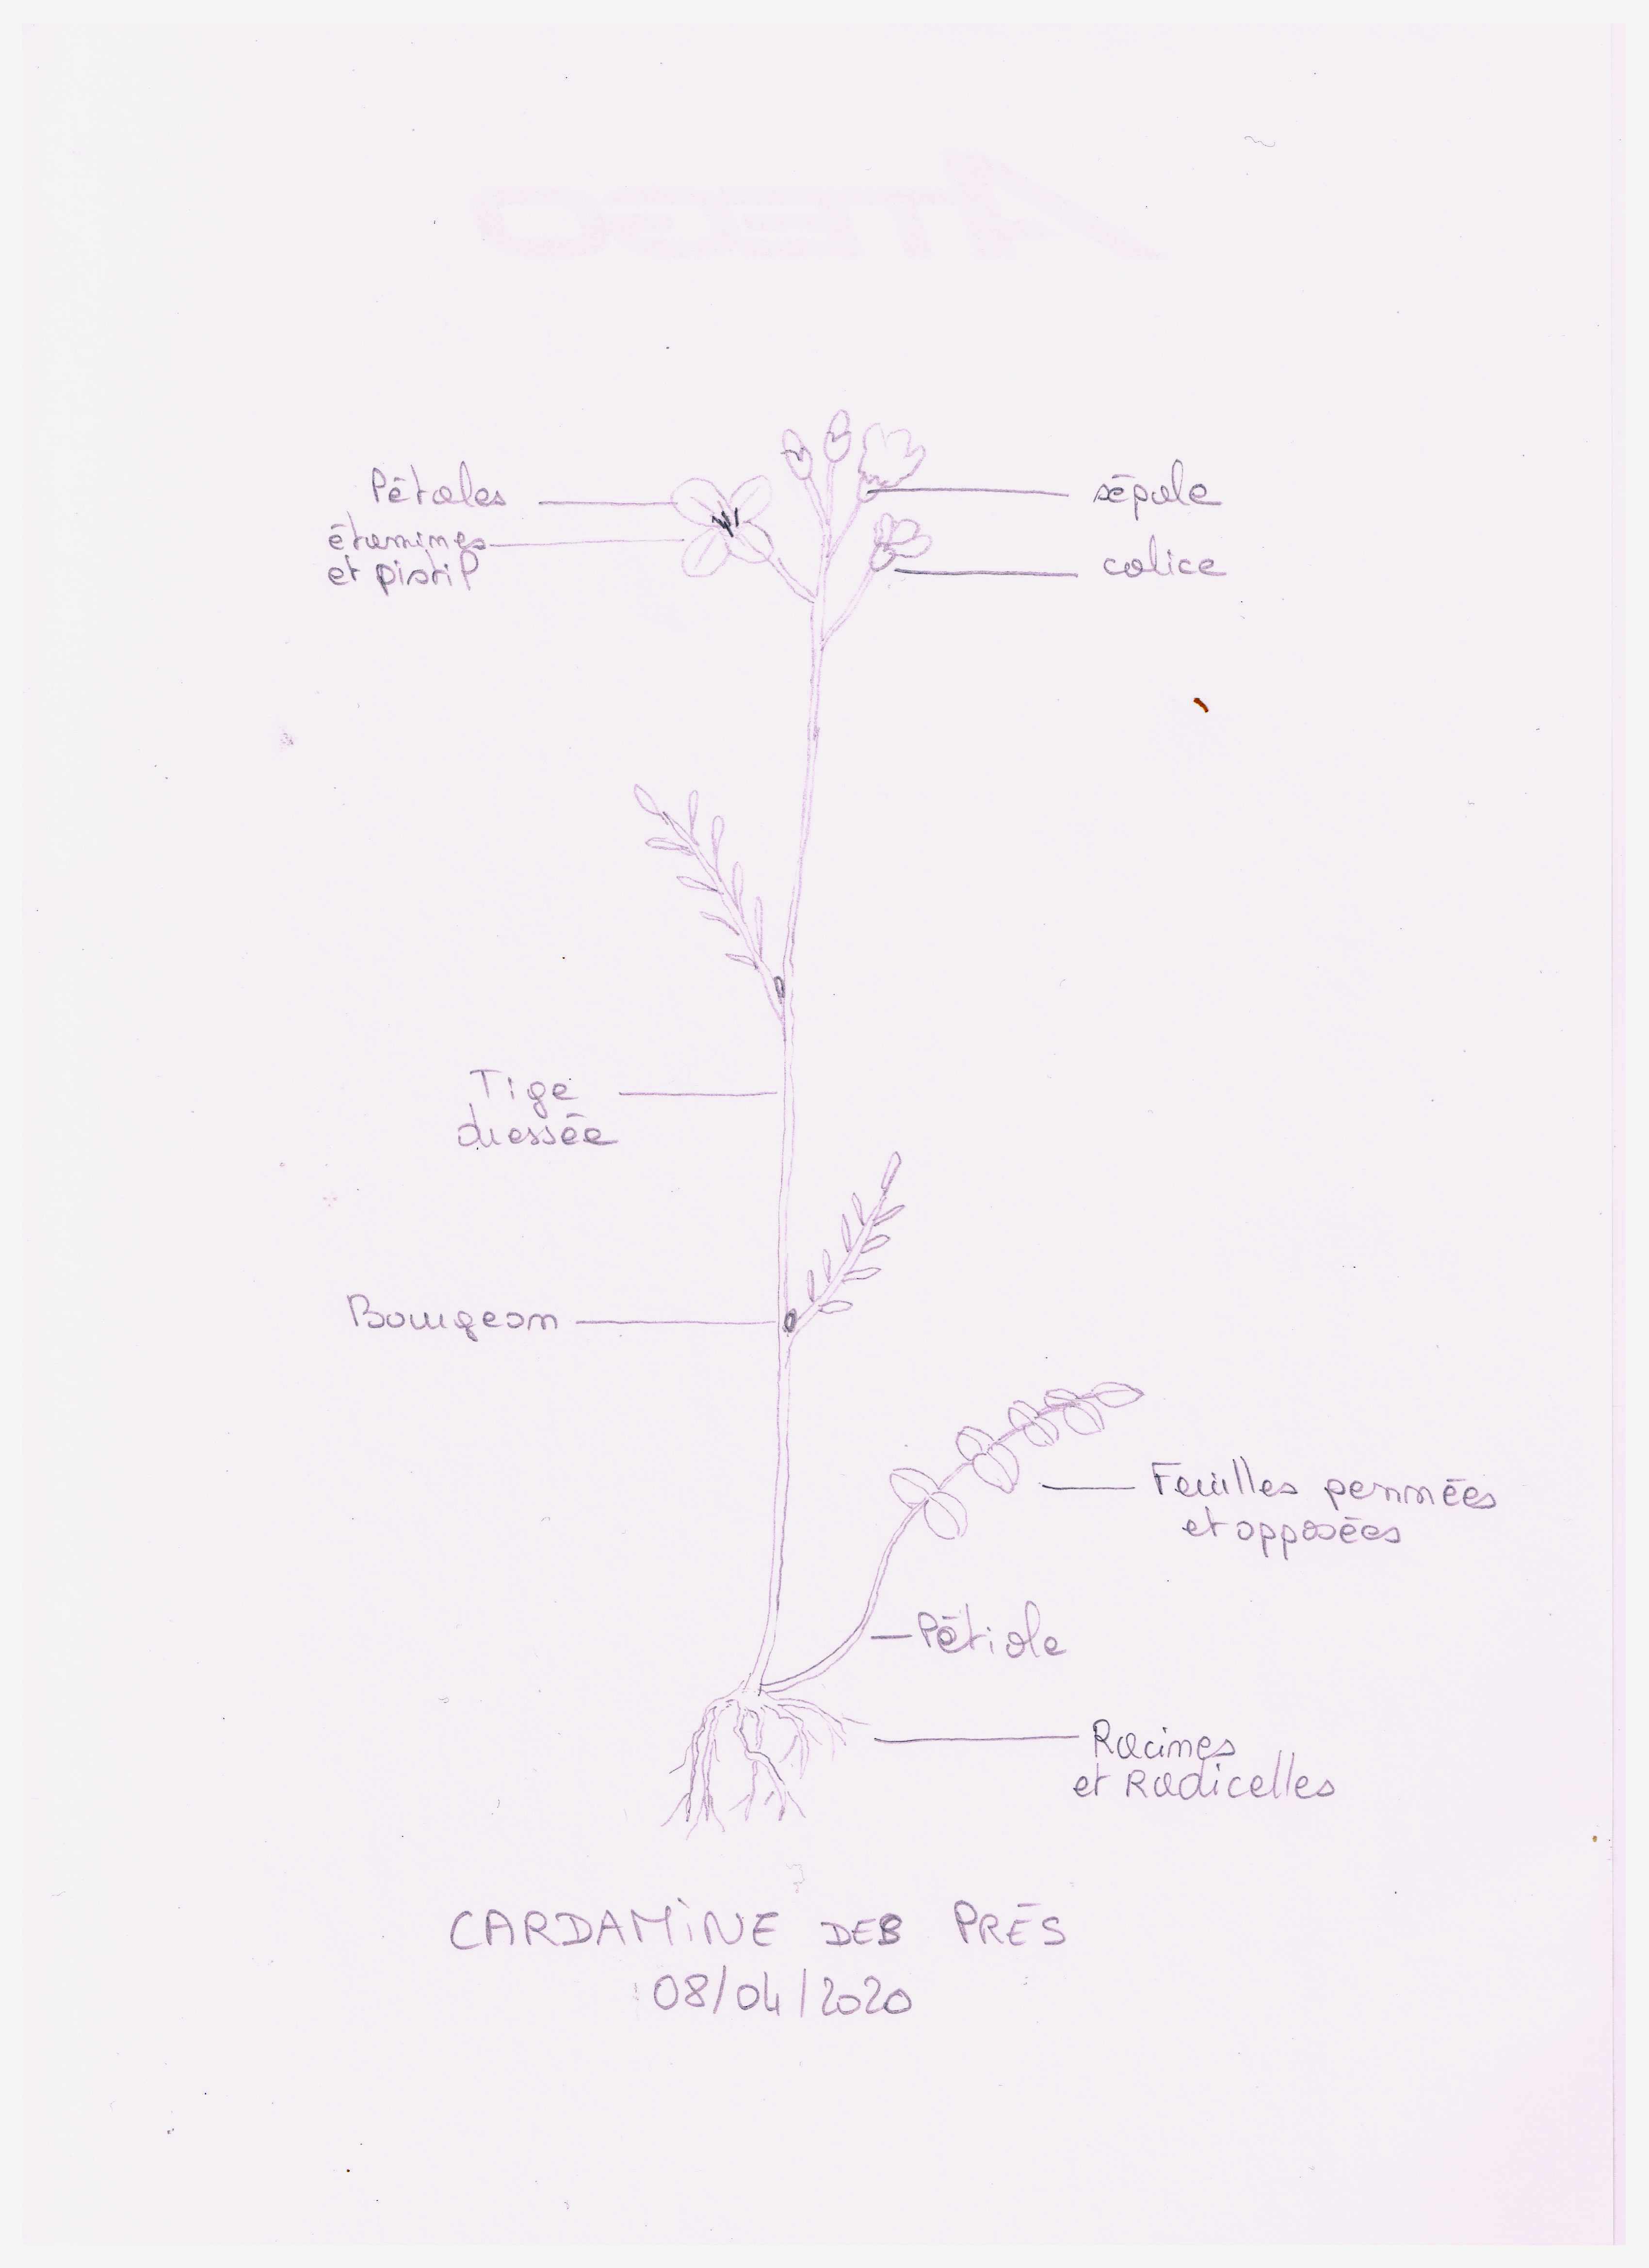 ATEGO
Pétales
étamines
et pistil
sépale
calice
Tige
dressée
Bourgeon
Feuilles pennées
et opposées
Pétiole
Racines
et Radicelles
CARDAMINE DES PRÉS
08/04/2020